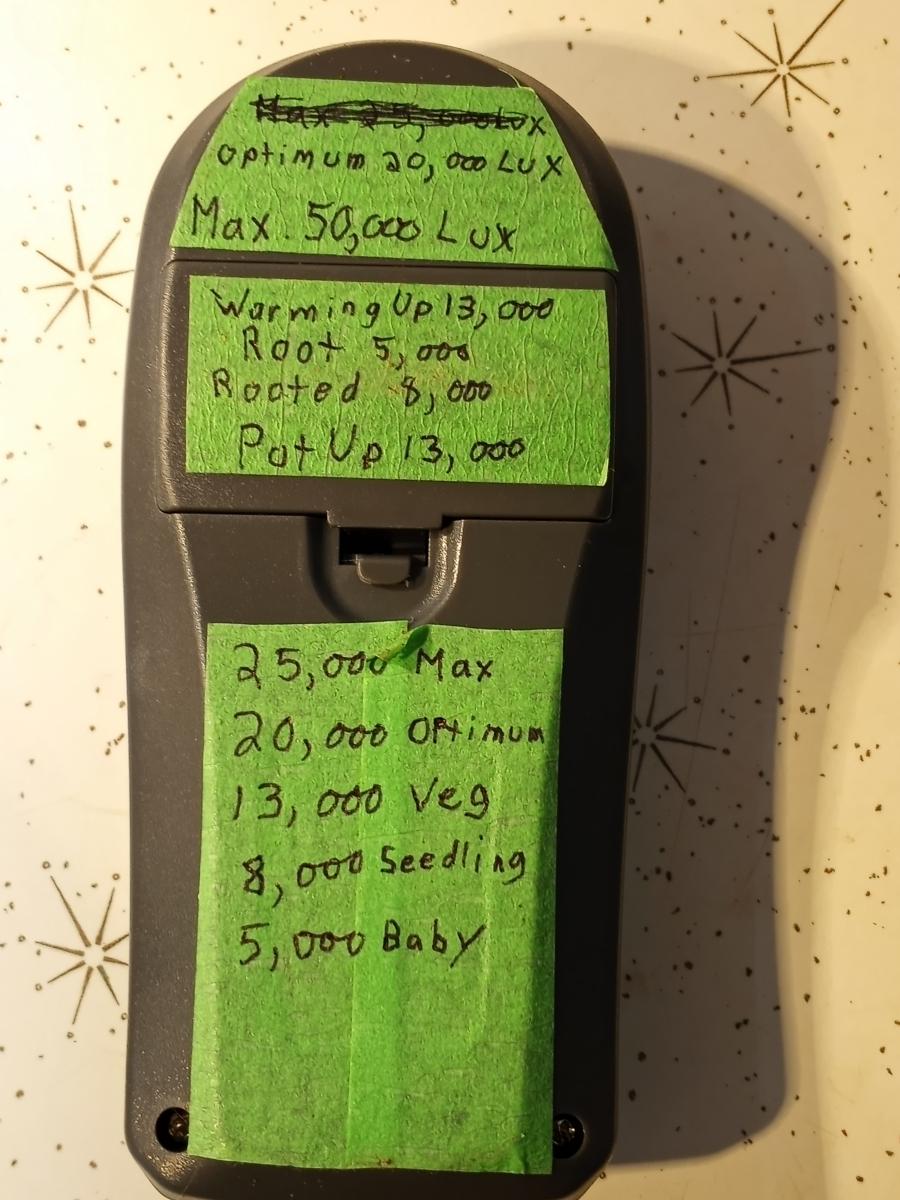 Max 25,000 Lux
optimum 20,000 Lux
Max. 50,000 Lux
Warming Up 13,000
Root 5,000
Rooted 8,000
Pot Up 13,000
25,000 Max
20,000 Optimum
13,000 Veg
8,000 Seedling
5,000 Baby